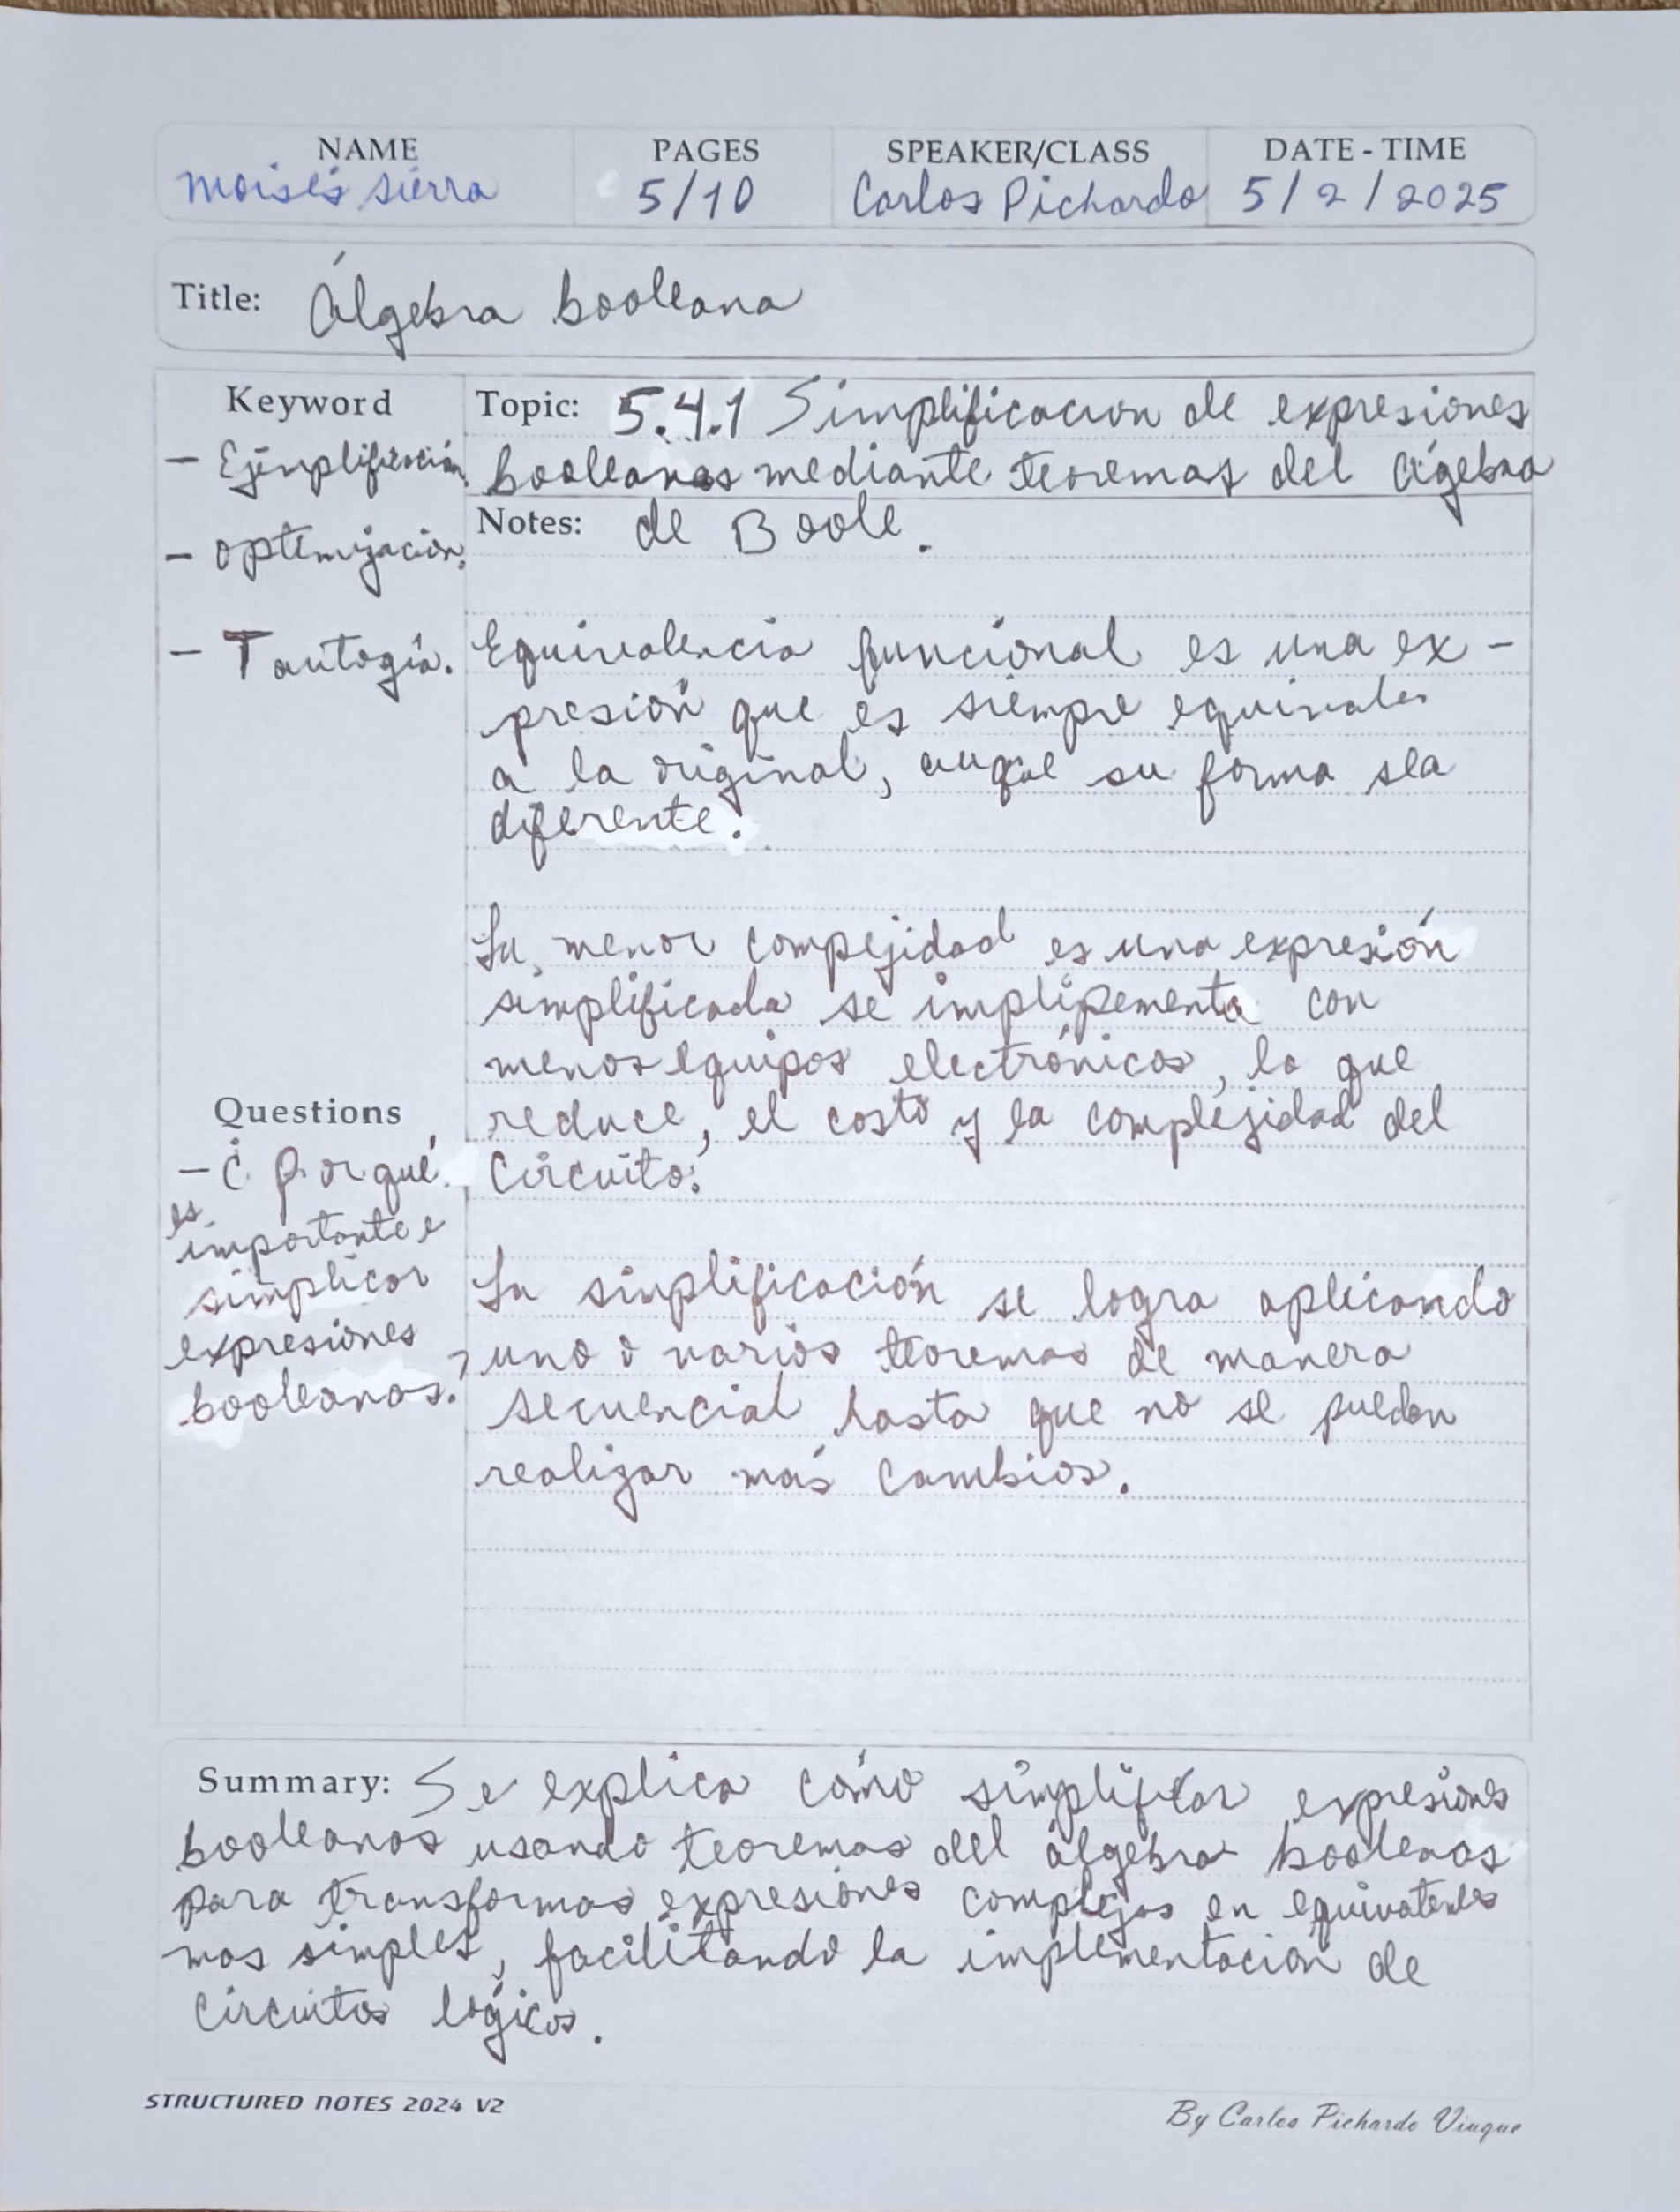 NAME PAGES SPEAKER/CLASS DATE - TIME
Moisés Sierra 5/10 Carlos Pichardo 5/2/2025
Title: Álgebra booleana
Keyword
- Ejenplificación.
- Optemizacion.
- Tautogía.
Topic: 5.4.1 Simplificacion de expresiones
booleanas mediante teoremas del Ágebra
Notes: de Boole.
Equivalencia funcional es una ex-
presión que es siempre equivales
a la original, auque su forma sea
diferente.
La, menor compejidad es una expresión
simplificada se implipementa con
menos equipos electrónicos, lo que
reduce, el costo y la complejidad del
Circuito.
La simplificación se logra aplicando
uno o varios teoremas de manera
secuencial hasta que no se puedan
realizar más cambios.
Questions
- ¿Porqué
es
importante e
simplicar
expresiones
booleanas?
Summary: Se explica cómo simplificar expresiones
booleanas usando teoremas del álgebra booleanas
para transformas expresiones complejas en equivatenles
mas simples, facilitando la implementacion de
Circuitos lógicos.
STRUCTURED NOTES 2024 V2
By Carlos Pichardo Viuque